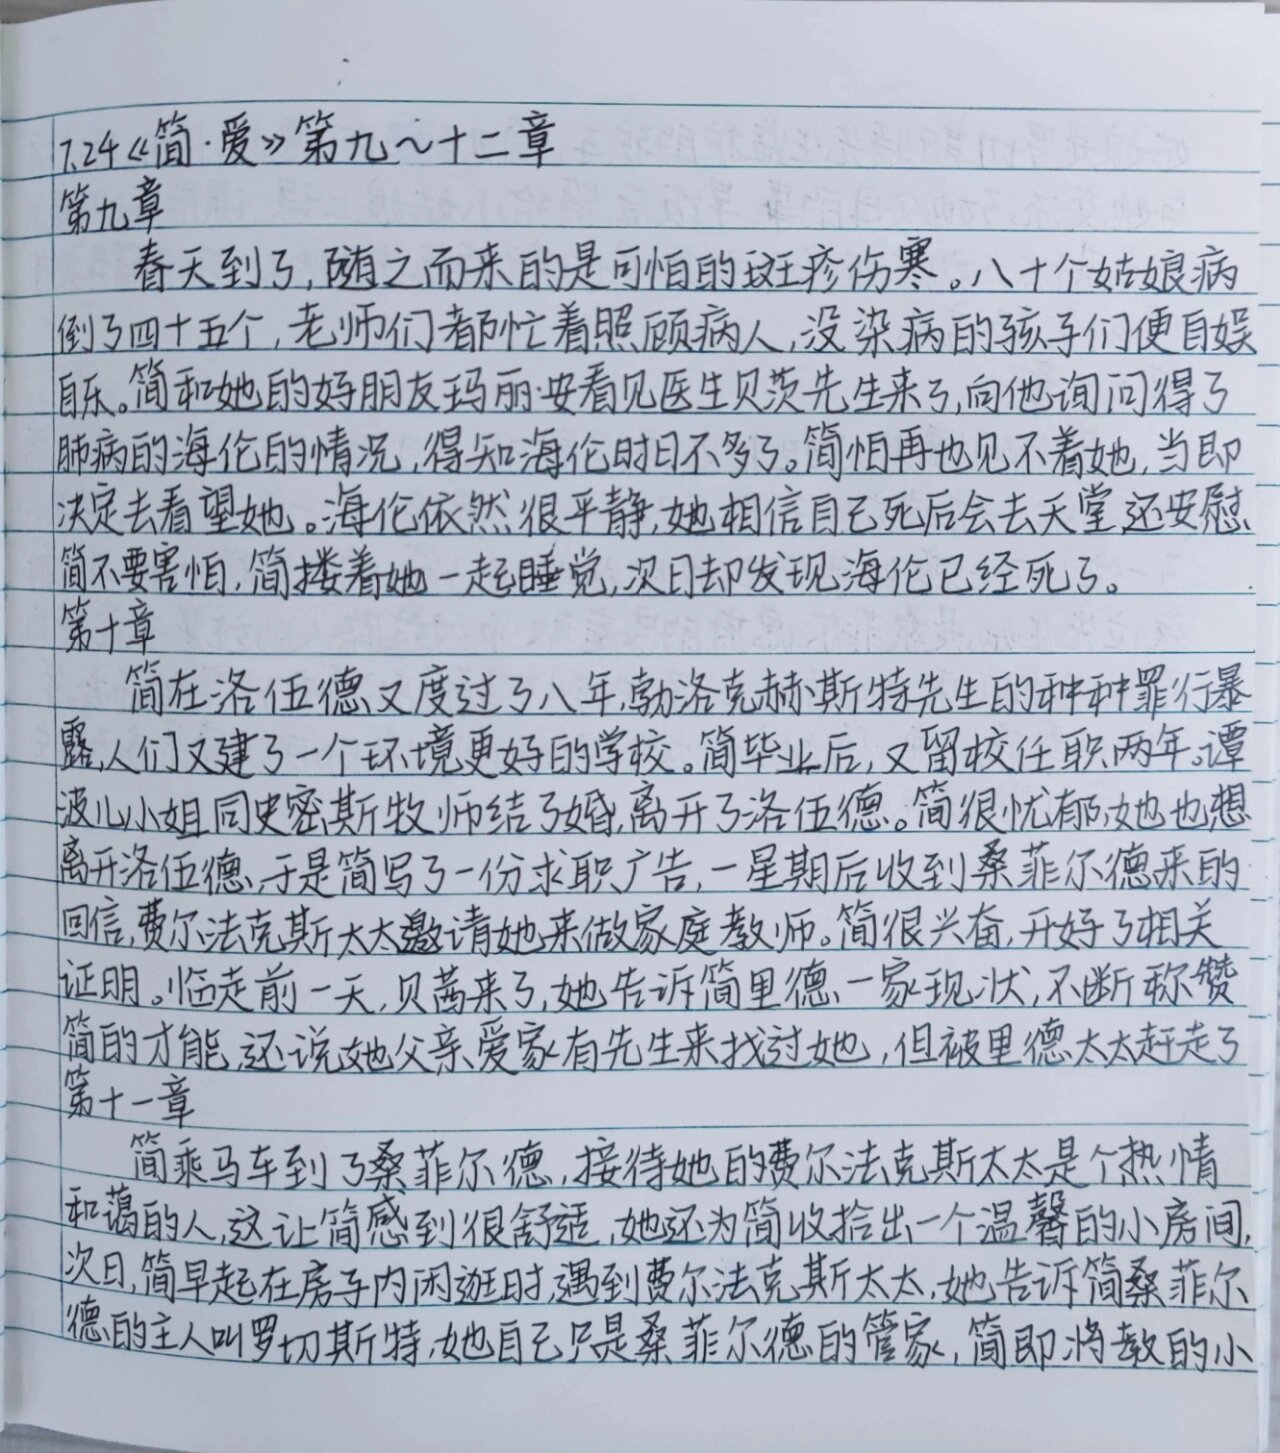 7.24《简·爱》第九～十二章
第九章
春天到了,随之而来的是可怕的斑疹伤寒。八十个姑娘病
倒了四十五个,老师们都忙着照顾病人,没染病的孩子们便自娱
自乐。简和她的好朋友玛丽·安看见医生贝茨先生来了,向他询问得了
肺病的海伦的情况,得知海伦时日不多了。简怕再也见不着她,当即
决定去看望她。海伦依然很平静,她相信自己死后会去天堂,还安慰
简不要害怕,简搂着她一起睡觉,次日却发现海伦已经死了。
第十章
简在洛伍德又度过了八年,勃洛克赫斯特先生的种种罪行暴
露,人们又建了一个环境更好的学校。简毕业后,又留校任职两年。谭
波儿小姐同史密斯牧师结了婚,离开了洛伍德。简很忧郁,她也想
离开洛伍德,于是简写了一份求职广告,一星期后收到桑菲尔德来的
回信,费尔法克斯太太邀请她来做家庭教师。简很兴奋,开好了相关
证明。临走前一天,贝茜来了,她告诉简里德一家现状,不断称赞
简的才能,还说她父亲爱家有先生来找过她,但被里德太太赶走了
第十一章
简乘马车到了桑菲尔德,接待她的费尔法克斯太太是个热情
和蔼的人,这让简感到很舒适,她还为简收拾出一个温馨的小房间,
次日,简早起在房子内闲逛时,遇到费尔法克斯太太,她告诉简桑菲尔
德的主人叫罗切斯特,她自己只是桑菲尔德的管家,简即将教的小